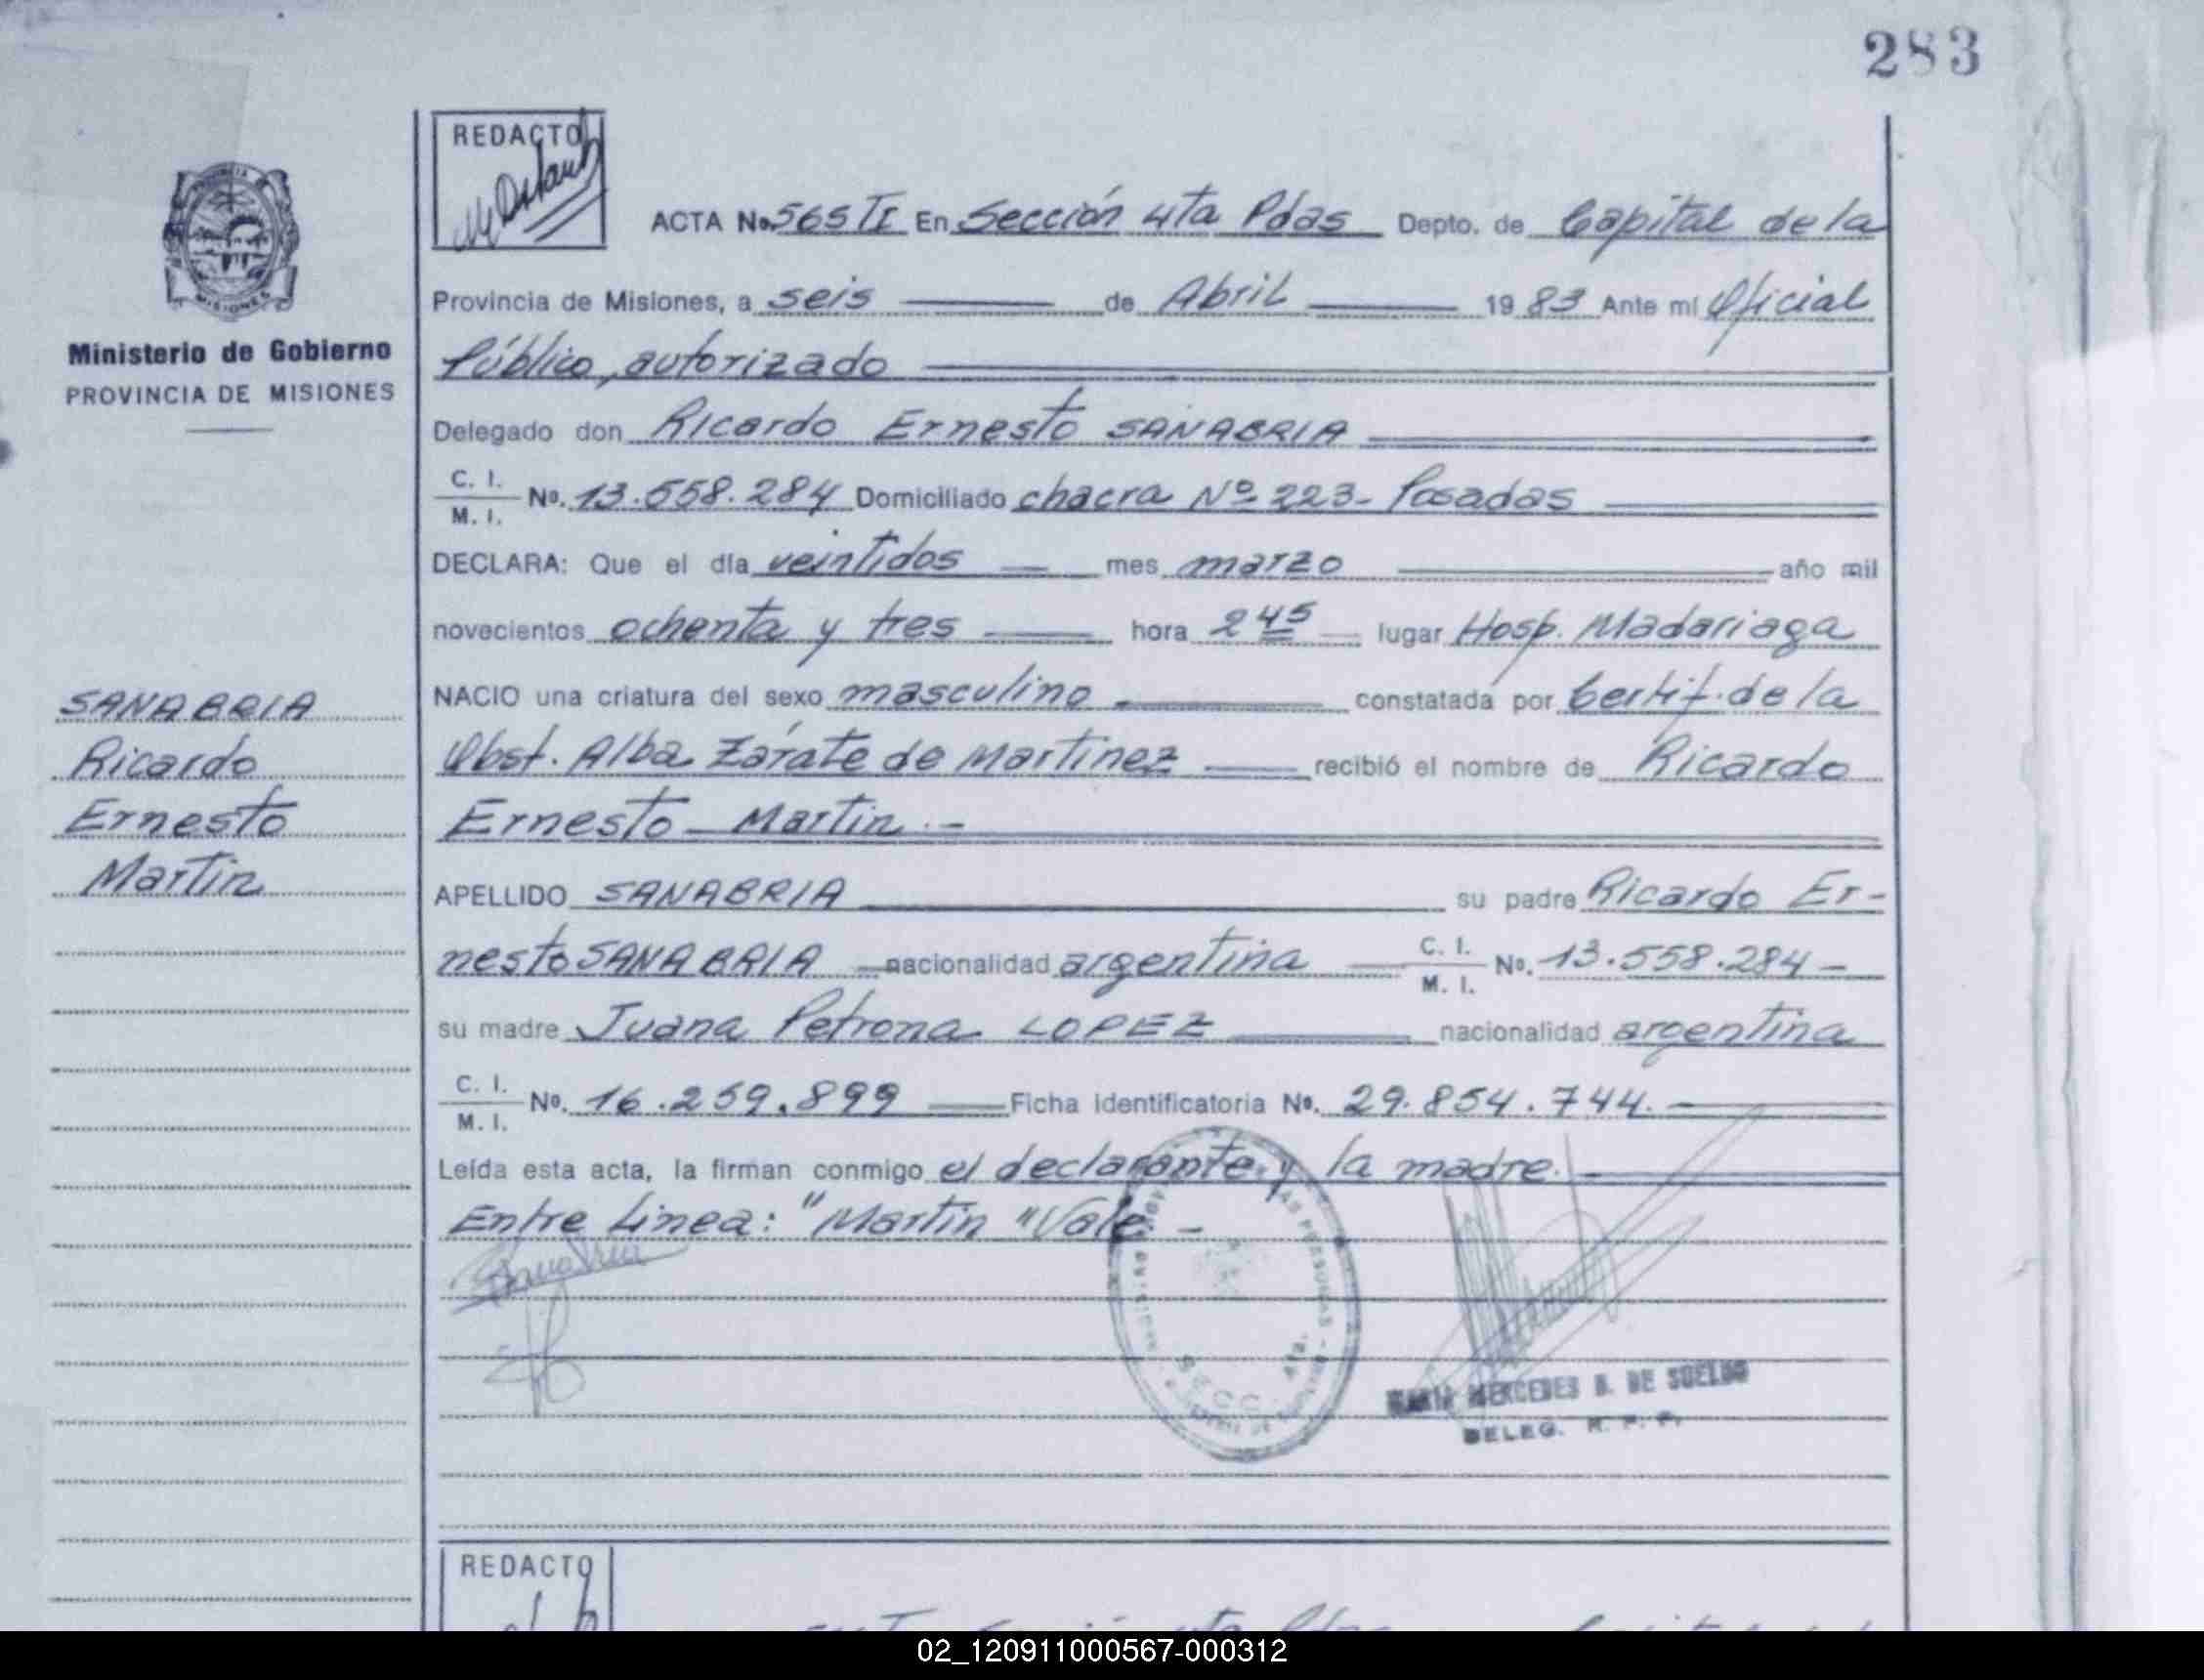 283
REDACTO
ACTA No. 565 TI En Sección 4ta Pdas Depto. de Capital de la
Provincia de Misiones, a seis de Abril 1983 Ante mí Oficial
Ministerio de Gobierno
PROVINCIA DE MISIONES
Público, autorizado
Delegado don Ricardo Ernesto SANABRIA
C. I.
M. I. No. 13.558.284 Domiciliado chacra Nº 223- Posadas
DECLARA: Que el día veintidos mes marzo año mil
novecientos ochenta y tres hora 2 45 lugar Hosp. Madariaga
NACIO una criatura del sexo masculino constatada por Certif. de la
Obst. Alba Zárate de Martinez recibió el nombre de Ricardo
Ernesto Martin.-
SANABRIA
Ricardo
Ernesto
Martin
APELLIDO SANABRIA su padre Ricardo Er-
nesto SANABRIA nacionalidad argentina C. I.
M. I. No. 13.558.284-
su madre Juana Petrona LOPEZ nacionalidad argentina
C. I.
M. I. No. 16.259.899 Ficha identificatoria No. 29.854.744.
Leída esta acta, la firman conmigo el declarante y la madre.
Entre Linea: "Martin" Vale.-
SECC. 4ta.
MARIA MERCEDES B. DE SUELDO
DELEG. R. P. P.
REDACTO
02_120911000567-000312